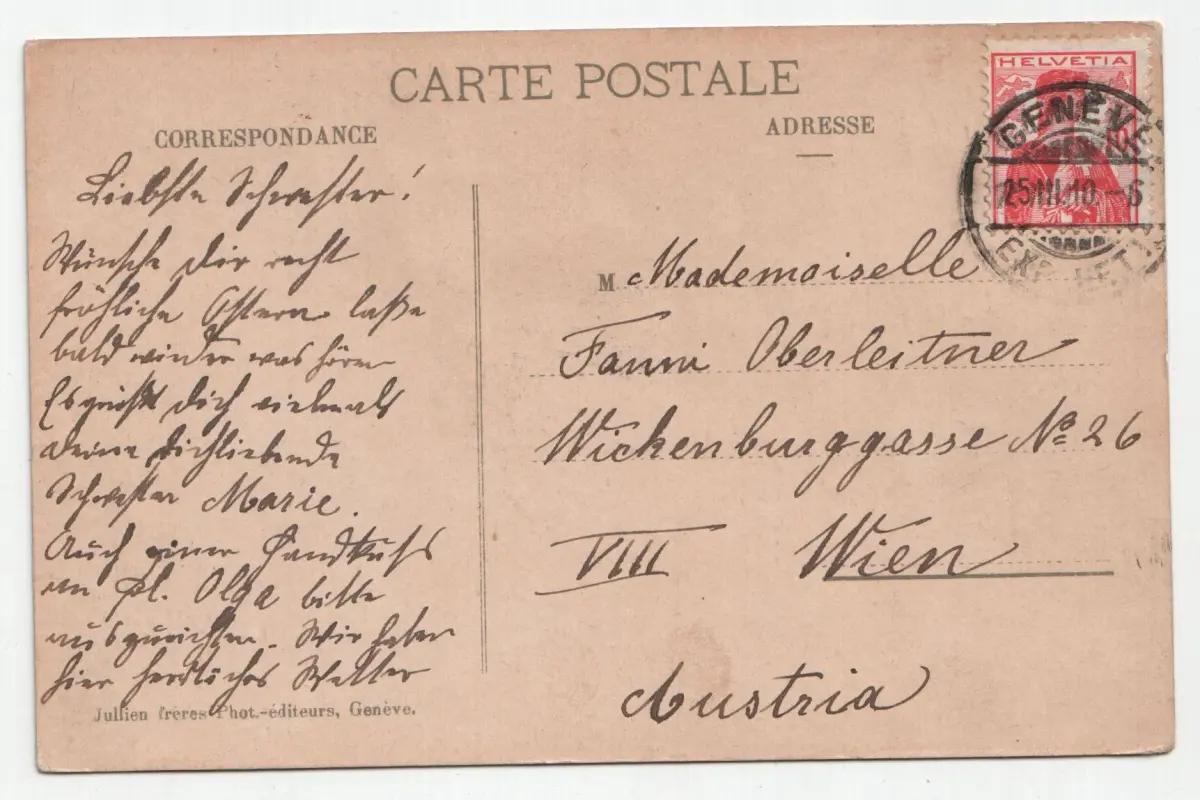 CARTE POSTALE
CORRESPONDANCE
ADRESSE
HELVETIA
GENÈVE
25.III.10.-6
EXP. LET.
Liebste Schwester!
Wünsche dir recht
fröhliche Ostern laße
bald wieder was hören
Es grüßt dich vielmals
deine dichliebende
Schwester Marie.
Auch einen Handkuß
an Fl. Olga bitte
auszurichten. Wir haben
hier herrliches Wetter
Jullien frères Phot.-éditeurs, Genève.
M Mademoiselle
Fanni Oberleitner
Wickenburggasse No 26
VIII Wien
Austria